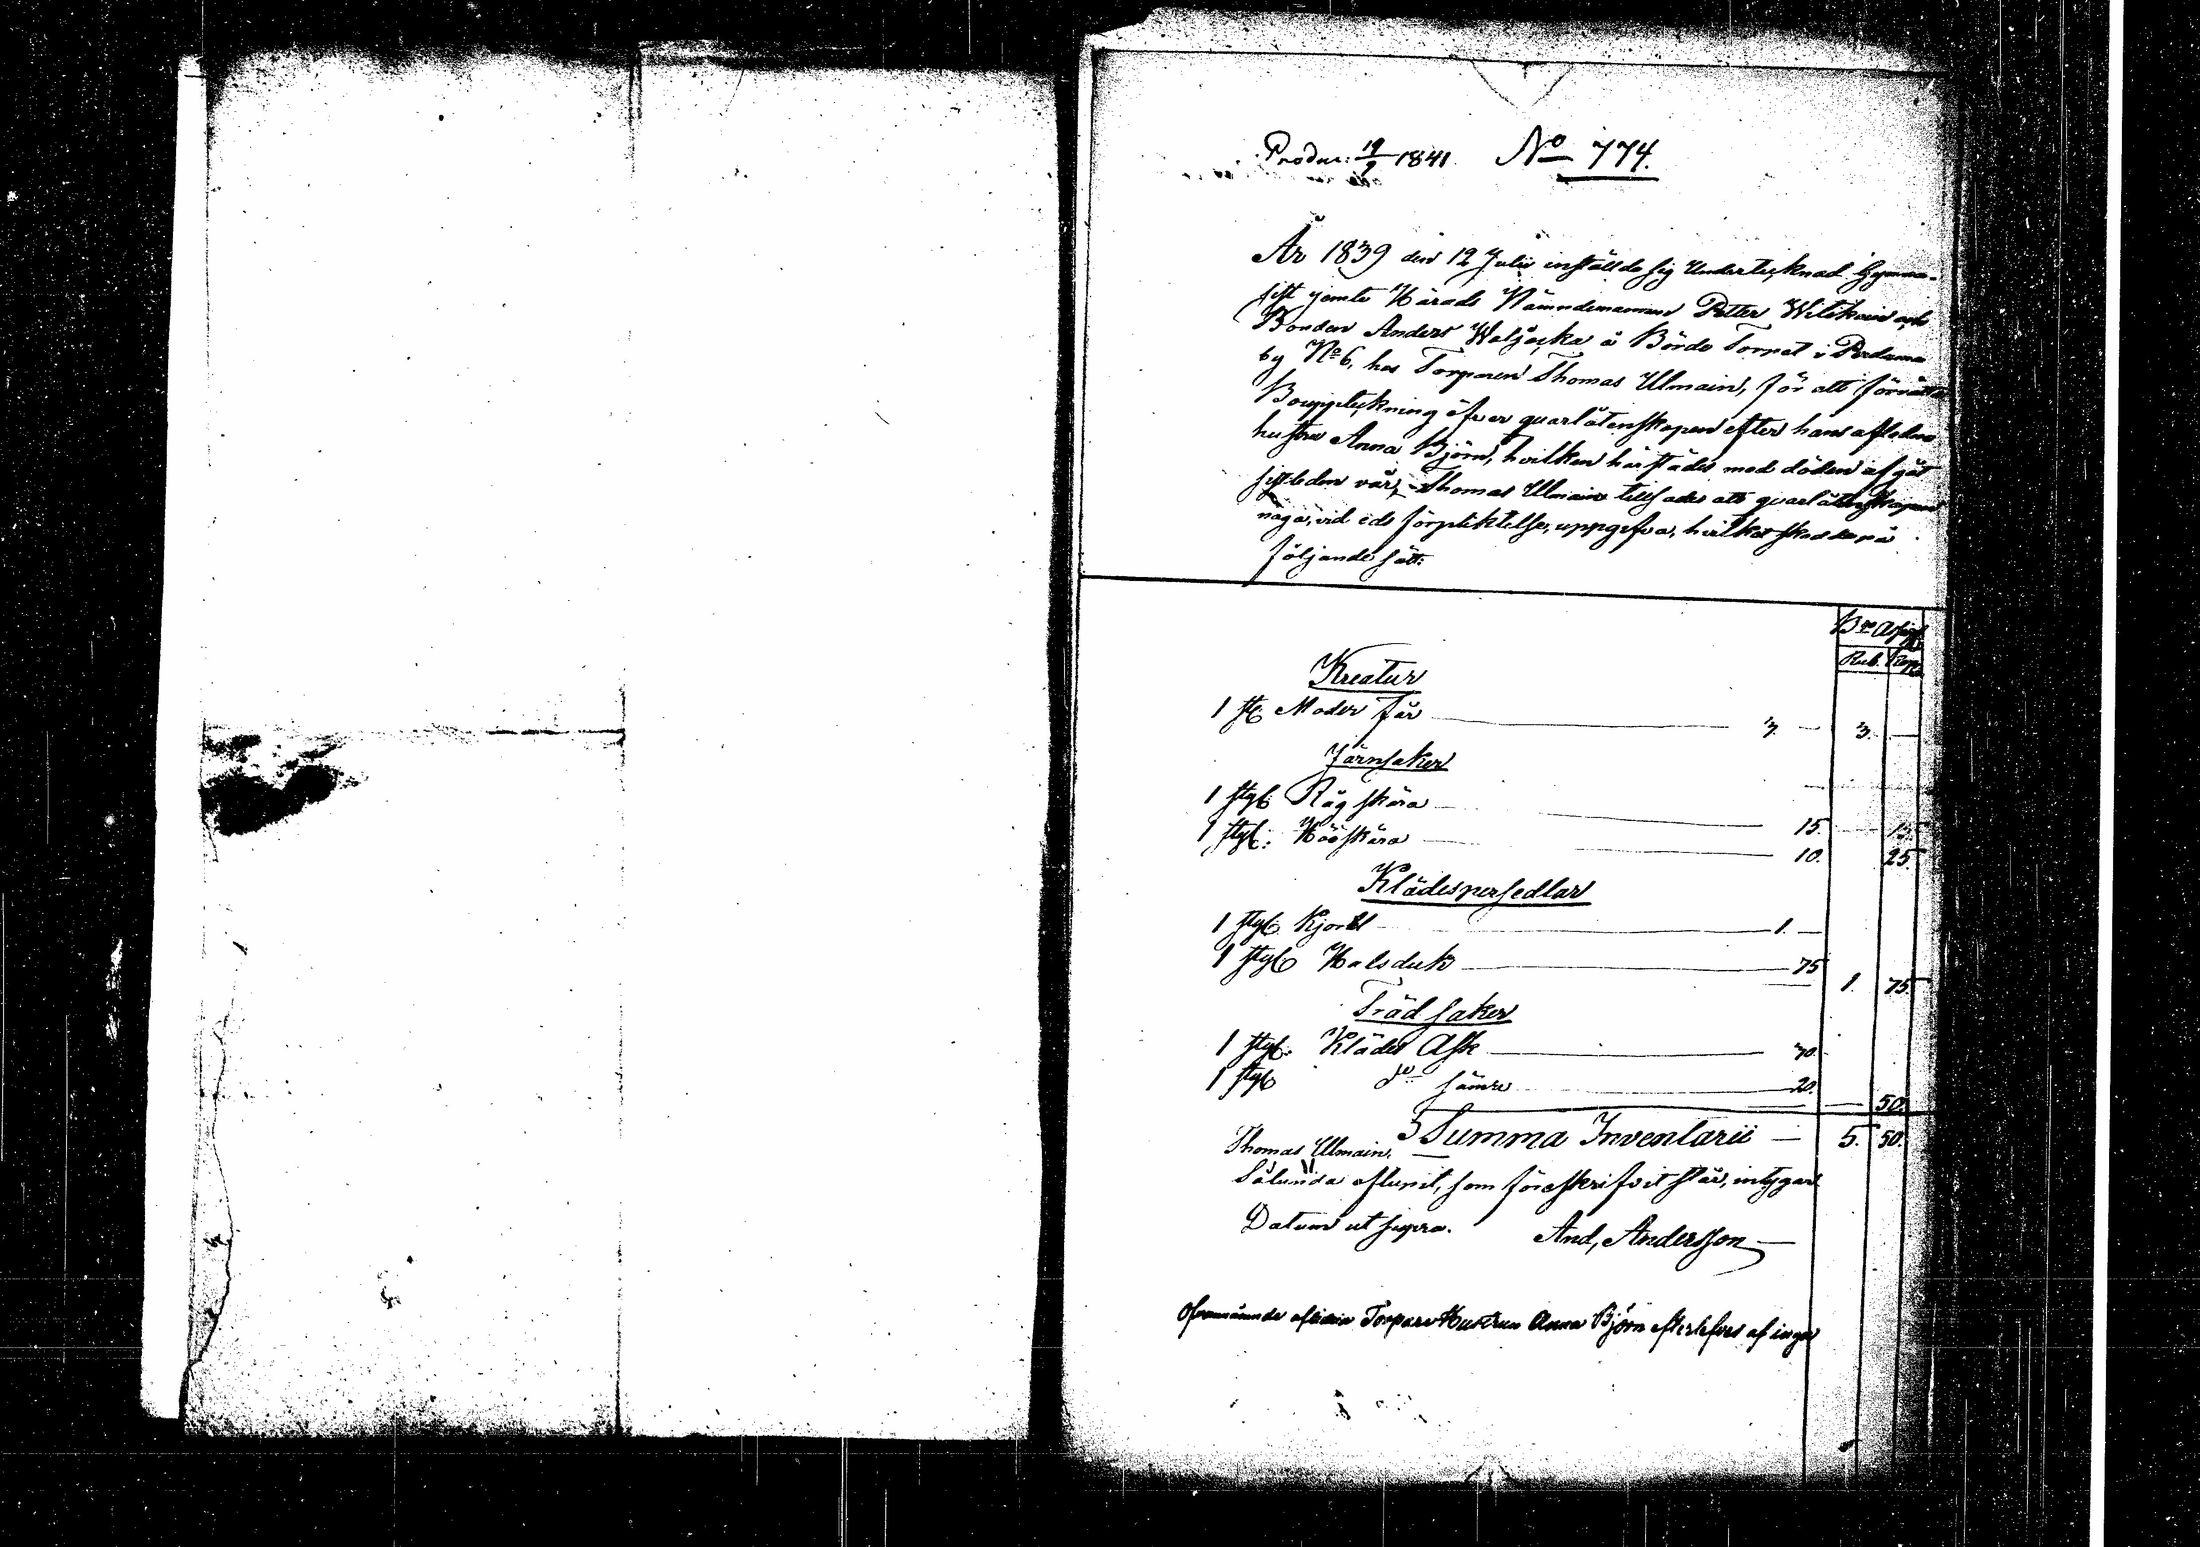 Produc: 19/9 1841. No 774.
År 1839 den 12 Julii inställde sig Undertecknad Gymna-
sist jemte Härads Nämndemannen Petter Witikain och
Bonden Anders Waljacka å Börds Torpet i
by No 6, hos Torparen Thomas Ulmain, för att förrätta
Bouppteckning öfver quarlåtenskapen efter hans aflidna
hustru Anna Björn, hvilken härstädes med döden afgåt
sistleden vår, Thomas Ulmain tillsades att quarlåtenskapen
noga, vid eds förpliktelse, uppgifva, hvilket skedde på
följande sätt:
Bco Assign.
Rub. Kop.
Kreatur
1 st. Moder får 3. — 3. —
Järnsaker
1 styk Råg skära 15. 15.
1 styk: Höö skära 10. 25.
Klädespersedlar
1 styk Kjortel 1. —
1 styk Halsduk 75 1. 75.
Träd saker
1 styk: Klädes Ask 30.
1 styk do sämre 20. 50.
Summa Inventarii — 5. 50.
Thomas Ulmain.
Sålunda aflupit, som föreskrifvit står, intygar
Datum ut supra. And, Andersson
Ofvannämnde aflidna Torpare Hustrun Anna Björn efterlefves af inga